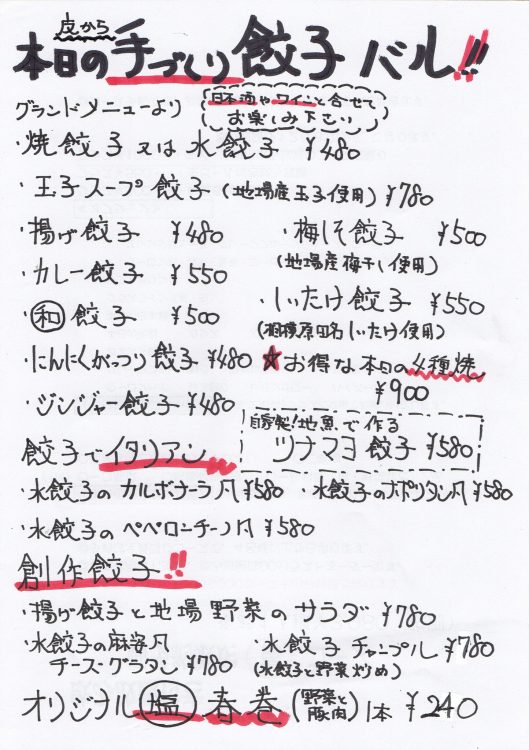 皮から
本日の手づくり餃子バル!!
グランドメニューより
日本酒やワインと合せて
お楽しみ下さい
・焼餃子又は水餃子 ¥480
・玉子スープ餃子 (地場産玉子使用) ¥780
・揚げ餃子 ¥480 ・梅しそ餃子 ¥500
(地場産梅干し使用)
・カレー餃子 ¥550
・しいたけ餃子 ¥550
(相模原田名しいたけ使用)
・和餃子 ¥500
・にんにくがっつり餃子 ¥480 ★お得な本日の4種焼
¥900
・ジンジャー餃子 ¥480
自家製!地魚で作る
ツナマヨ餃子 ¥580
餃子でイタリアン
・水餃子のカルボナーラ风 ¥580 ・水餃子のナポリタン风 ¥580
・水餃子のペペロンチーノ风 ¥580
創作餃子!!
・揚げ餃子と地場野菜のサラダ ¥780
・水餃子の麻婆风
チーズグラタン ¥780
・水餃子チャンプル ¥780
(水餃子と野菜炒め)
オリジナル塩春巻 (野菜と豚肉) 1本 ¥240